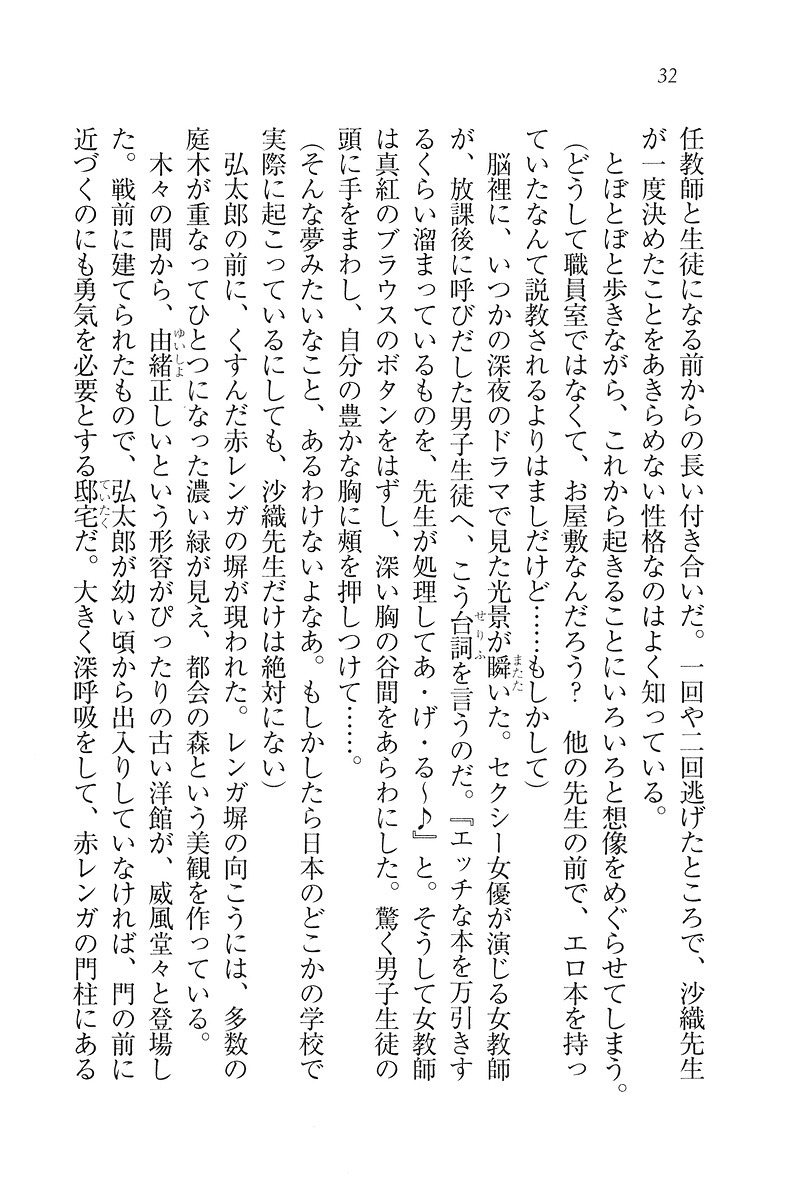 32
任教師と生徒になる前からの長い付き合いだ。一回や二回逃げたところで、沙織先生
が一度決めたことをあきらめない性格なのはよく知っている。
とぼとぼと歩きながら、これから起きることにいろいろと想像をめぐらせてしまう。
(どうして職員室ではなくて、お屋敷なんだろう？　他の先生の前で、エロ本を持っ
ていたなんて説教されるよりはましだけど……もしかして)
脳裡に、いつかの深夜のドラマで見た光景が瞬いた。セクシー女優が演じる女教師
が、放課後に呼びだした男子生徒へ、こう台詞を言うのだ。『エッチな本を万引きす
るくらい溜まっているものを、先生が処理してあ・げ・る～♪』と。そうして女教師
は真紅のブラウスのボタンをはずし、深い胸の谷間をあらわにした。驚く男子生徒の
頭に手をまわし、自分の豊かな胸に頬を押しつけて……。
(そんな夢みたいなこと、あるわけないよなあ。もしかしたら日本のどこかの学校で
実際に起こっているにしても、沙織先生だけは絶対にない)
弘太郎の前に、くすんだ赤レンガの塀が現われた。レンガ塀の向こうには、多数の
庭木が重なってひとつになった濃い緑が見え、都会の森という美観を作っている。
木々の間から、由緒正しいという形容がぴったりの古い洋館が、威風堂々と登場し
た。戦前に建てられたもので、弘太郎が幼い頃から出入りしていなければ、門の前に
近づくのにも勇気を必要とする邸宅だ。大きく深呼吸をして、赤レンガの門柱にある